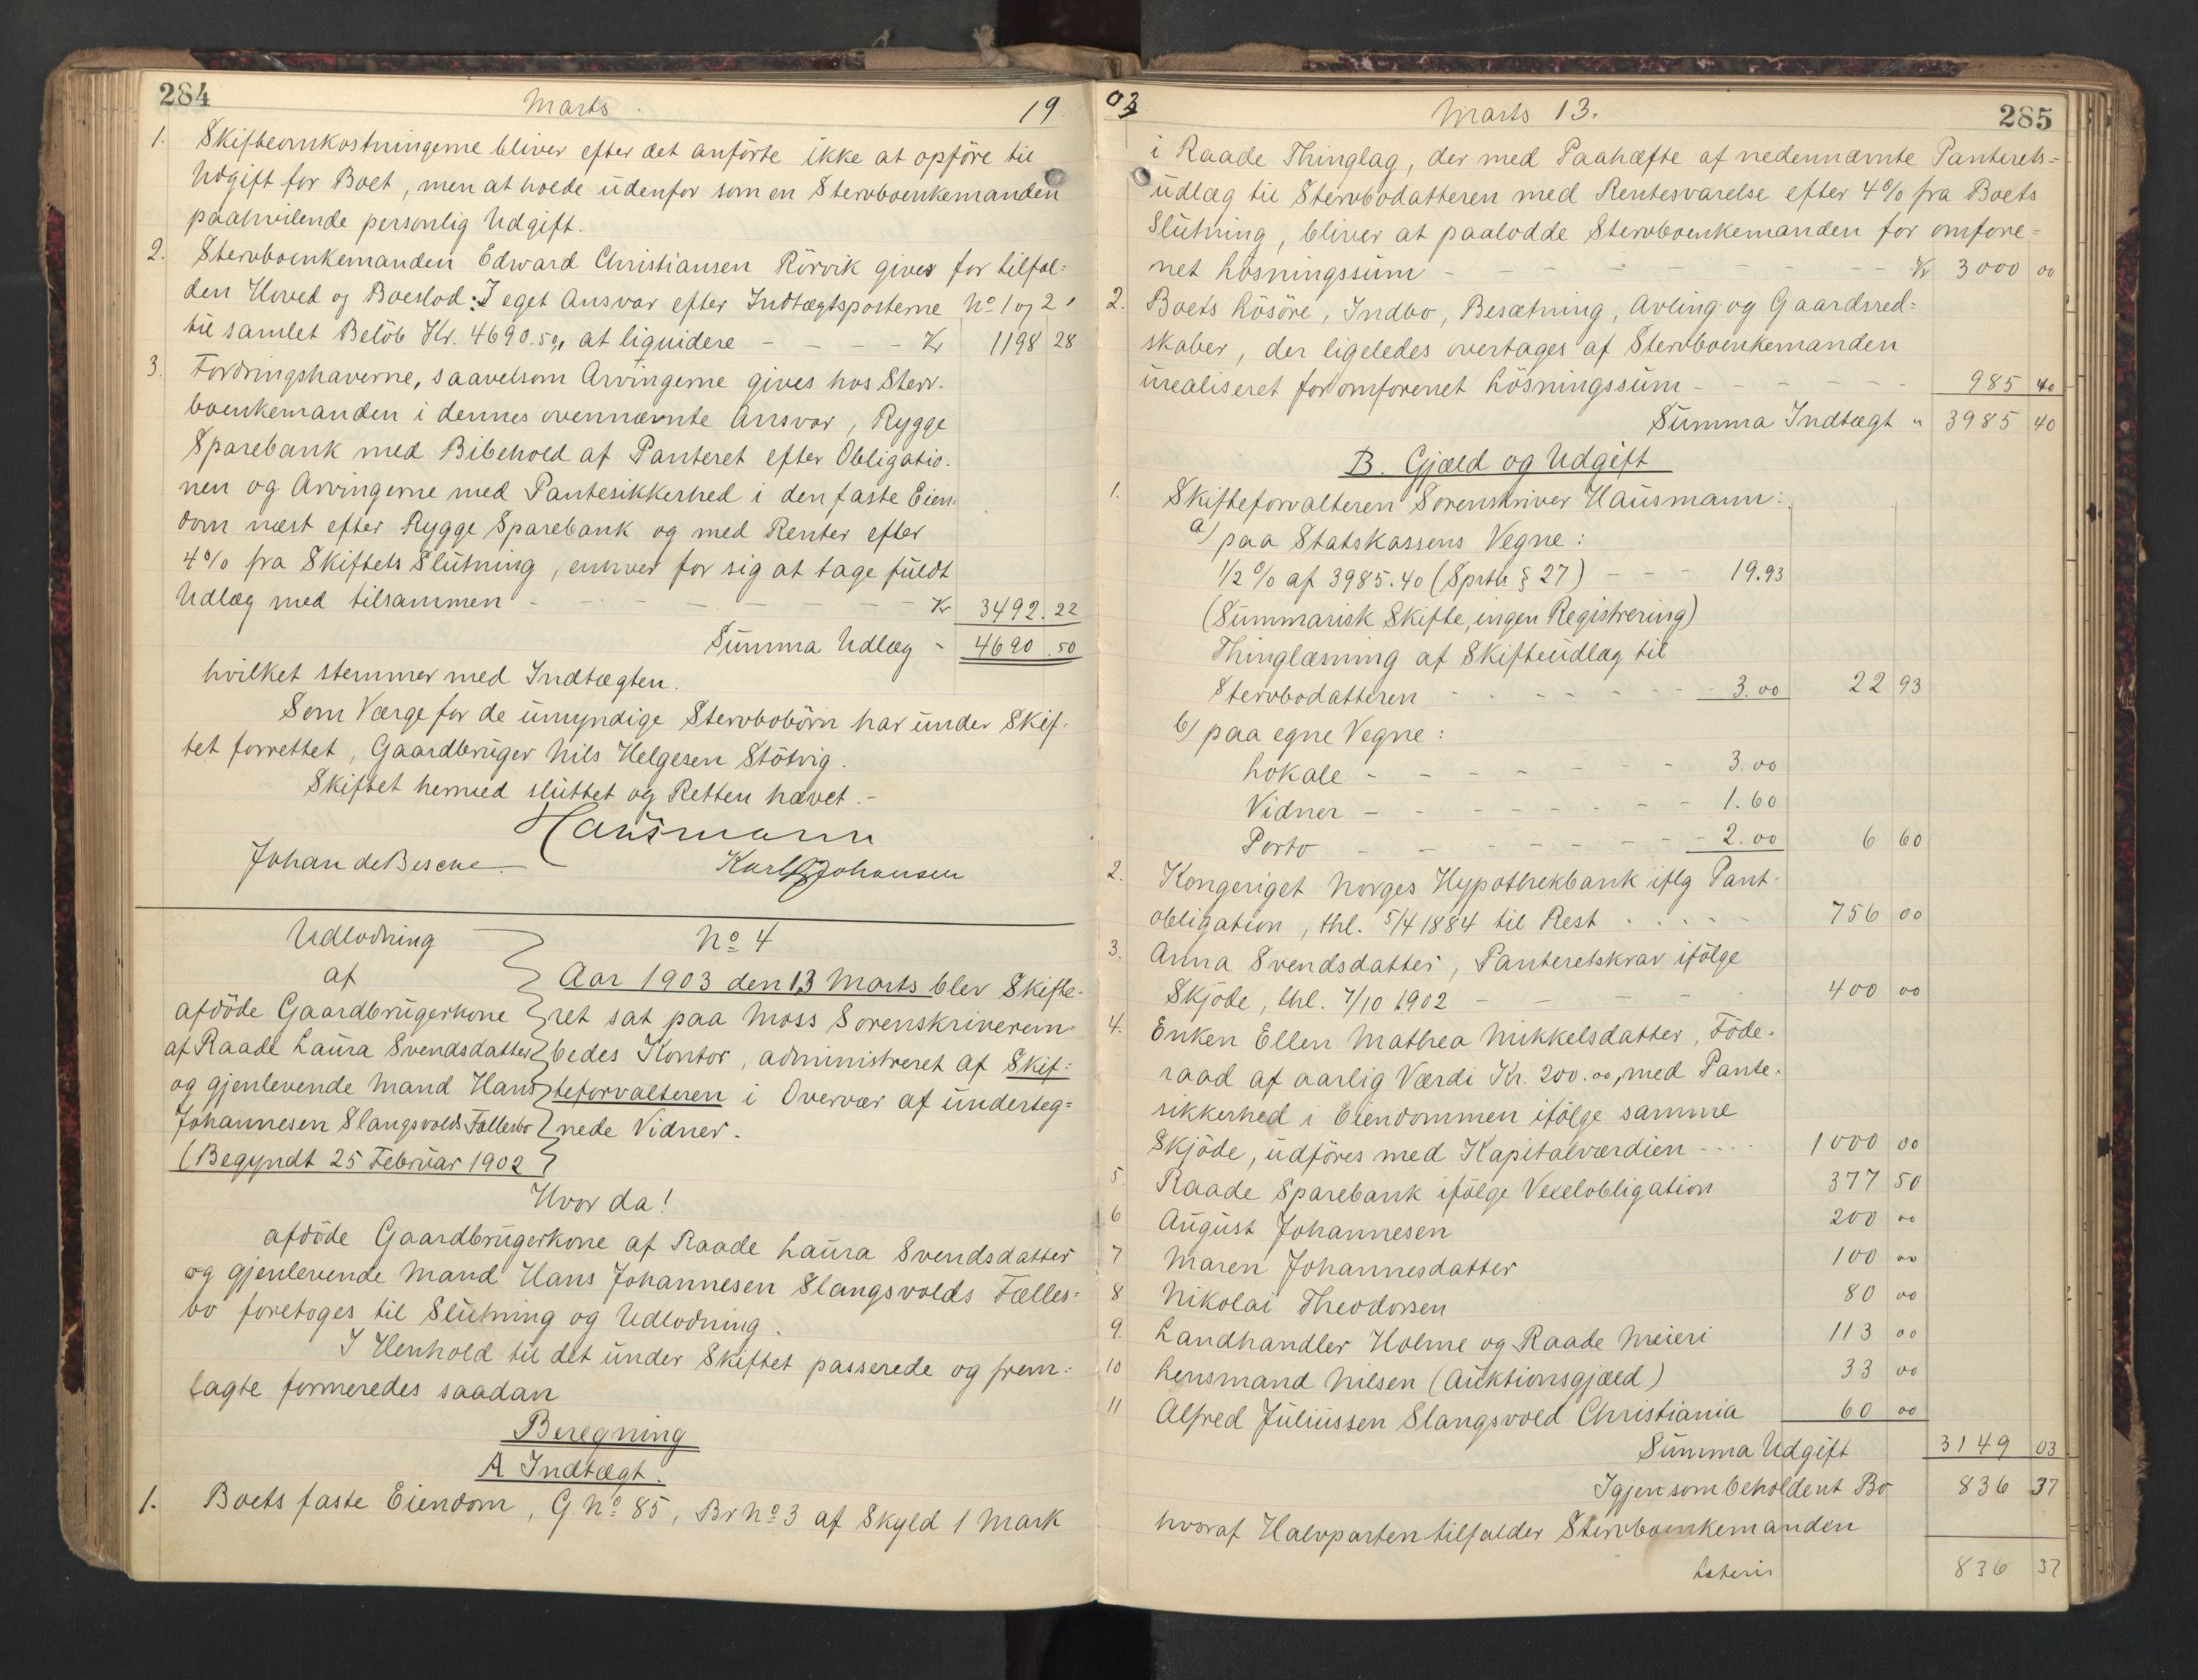 284
Marts
19
1. Skifteomkostningerne bliver efter det anförte ikke at opföre til
Udgift for Boet, men at holde udenfor som en Stervboenkemanden
paahvilende personlig Udgift.
2. Stervboenkemanden Edward Christiansen Rörvik gives for tilfal=
den Hoved og Boeslod: I eget Ansvar efter Indtægtsposterne No 1 og 2
til samlet Belöb Kr. 4690.50, at liquidere - - - - Kr 1198 28
3. Fordringshaverne, saavelsom Arvingerne gives hos Sterv-
boenkemanden i dennes ovennævnte Ansvar, Rygge
Sparebank med Bibehold af Panteret efter Obligatio-
nen og Arvingerne med Pantesikkerhed i den faste Eien-
dom næst efter Rygge Sparebank og med Renter efter
4% fra Skiftets Slutning, enhver for sig at tage fuldt
Udlæg med tilsammen - - - - - - Kr 3492.22
Summa Udlæg - 4690.50
hvilket stemmer med Indtægten.
Som Værge for de umyndige Stervbobörn har under Skif-
tet forrettet, Gaardbruger Nils Helgesen Stötvig.
Skiftet hermed sluttet og Retten hævet.-
Hausmann
Johan de Besche. Karl Johansen
Udlodning
af
afdöde Gaardbrugerkone
af Raade Laura Svendsdatter
og gjenlevende Mand Hans
Johannesen Slangsvolds Fællesbo
(Begyndt 25 Februar 1902
No 4
Aar 1903 den 13 Marts blev Skifte-
ret sat paa Moss Sorenskriverem-
bedes Kontor, administreret af Skif=
teforvalteren i Overvær af underteg=
nede Vidner.
Hvor da!
afdöde Gaardbrugerkone af Raade Laura Svendsdatter
og gjenlevende Mand Hans Johannesen Slangsvolds Fælles=
bo foretoges til Slutning og Udlodning.
I Henhold til det under Skiftet passerede og frem=
lagte formeredes saadan
Beregning
A Indtægt.
1. Boets faste Eiendom, G. No 85, Br No 3 af Skyld 1 Mark
03
Marts 13.
285
i Raade Thinglag, der med Paahæfte af nedennævnte Panterets=
udlæg til Stervbodatteren med Rentesvarelse efter 4% fra Boets
Slutning, bliver at paalodde Stervboenkemanden for omfore=
net Lösningssum - - - - - - - Kr 3000 00
2. Boets Lösöre, Indbo, Besætning, Avling og Gaardsred=
skaber, der ligeledes overtages af Stervboenkemanden
urealiseret for omforenet Lösningssum - - - - - - 985 40
Summa Indtægt " 3985 40
B. Gjæld og Udgift
1. Skifteforvalteren Sorenskriver Hausmann:
a) paa Statskassens Vegne:
1/2 % af 3985.40 (Sprtl § 27) - - - 19.93
(Summarisk Skifte, ingen Registrering)
Thinglæsning af Skifteudlæg til
Stervbodatteren - - - - - - - 3.00 22 93
b) paa egne Vegne:
Lokale - - - - - - - 3.00
Vidner - - - - - - - 1.60
Porto - - - - - - - 2.00 6 60
2. Kongeriget Norges Hypothekbank iflg Pant-
obligation, thl. 5/4 1884 til Rest - - - - - 756 00
3. Anna Svendsdatter, Panteretskrav ifölge
Skjöde, thl. 7/10 1902 - - - - - 400 00
4. Enken Ellen Mathea Mikkelsdatter, Föde-
raad af aarlig Værdi Kr. 200.00, med Pante-
sikkerhed i Eiendommen ifölge samme
Skjöde, udföres med Kapitalværdien - - - 1000 00
5. Raade Sparebank ifölge Vexelobligation 377 50
6 August Johannesen 200 00
7 Maren Johannesdatter 100 00
8 Nikolai Theodorsen 80 00
9. Landhandler Holme og Raade Meieri 113 00
10 Lensmand Nilsen (Auktionsgjæld) 33 00
11 Alfred Juliussen Slangsvold Christiania 60 00
Summa Udgift 3149 03
Igjen som beholdent Bo 836 37
hvoraf Halvparten tilfalder Stervboenkemanden
Lateris 836 37